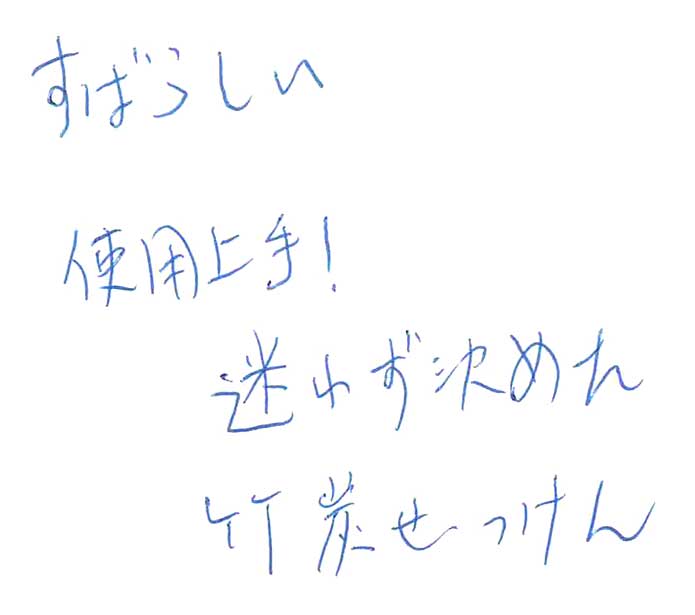 すばらしい
使用上手!
迷わず決めた
竹炭せっけん